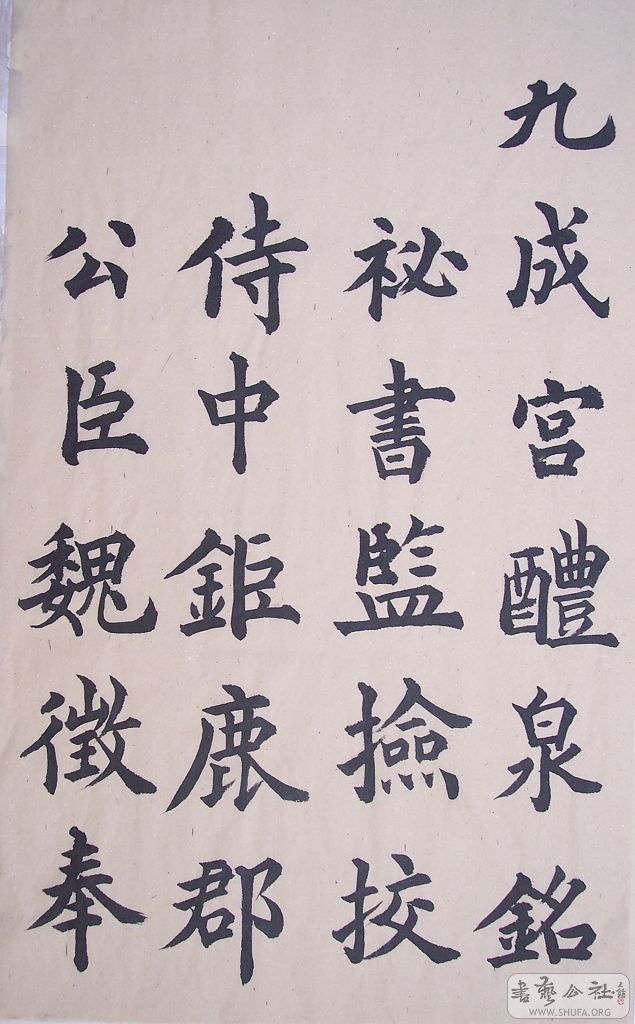 九成宮醴泉銘
祕書監撿挍
侍中鉅鹿郡
公臣魏徵奉
書藝公社
WWW.SHUFA.ORG